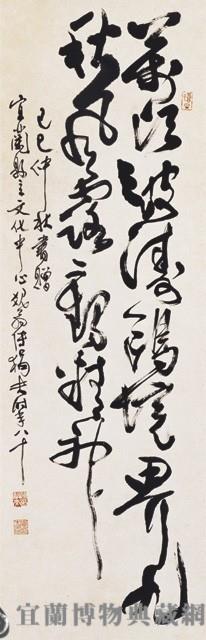 萬頃波濤鷗境界九
秋風露鶴精神
己巳仲秋書贈
宜蘭縣立文化中心覺翁傅狷夫年八十
宜蘭博物典藏網